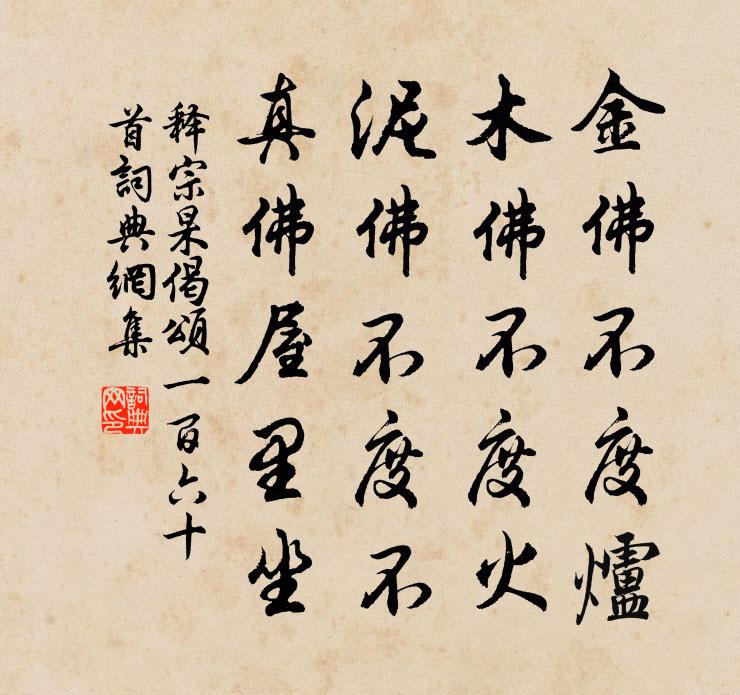 金佛不度爐
木佛不度火
泥佛不度不
真佛屋里坐
释宗杲偈頌一百六十
首詞典網集
詞典网印